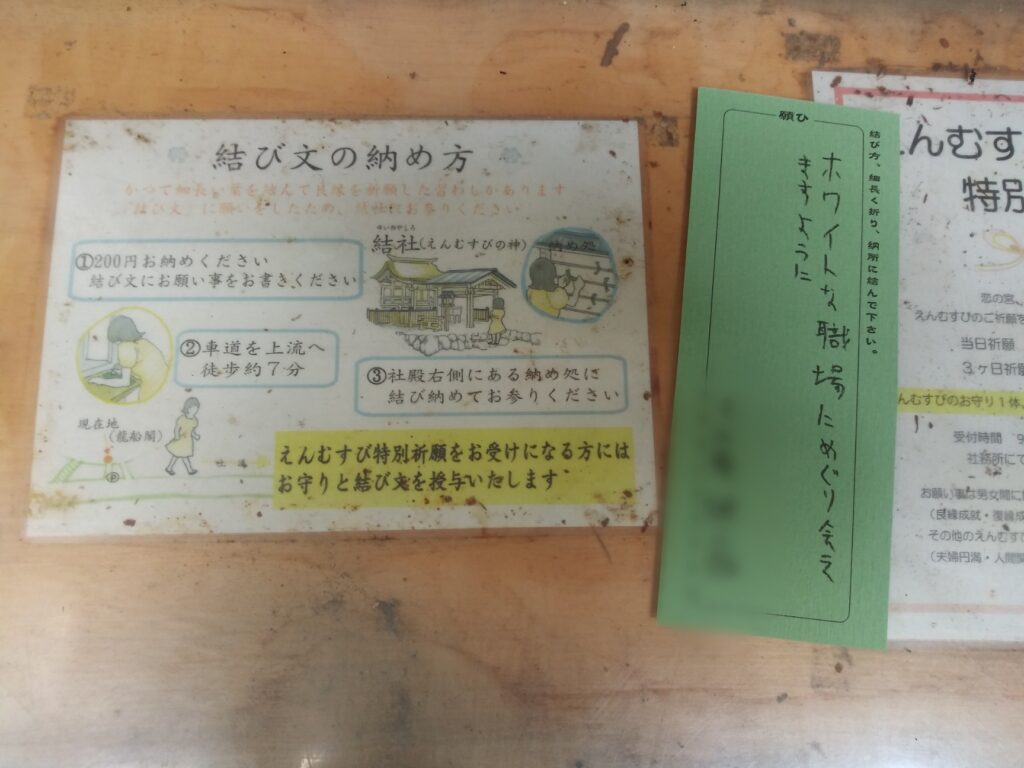 結び文の納め方
かつて細長い葉を結んで良縁を祈願した言わしがあります
結び文に願いをしたため、結社にお参りください
①200円お納めください
結び文にお願い事をお書きください
ゆいのやしろ
結社(えんむすびの神)
納め処
②車道を上流へ
徒歩約7分
③社殿右側にある納め処に
結び納めてお参りください
現在地
(龍船閣)
P
えんむすび特別祈願をお受けになる方には
お守りと結び文を授与いたします
願ひ
結び方、細長く折り、納所に結んで下さい。
ホワイトな職場にめぐり会え
ますように
えんむす
特別
恋の宮、
えんむすびのご祈願を
当日祈願
3ヶ日祈願
んむすびのお守り1体
受付時間 9
社務所にて
お願い事は男女間に
(良縁成就・復縁成
その他のえんむすび
(夫婦円満・人間関